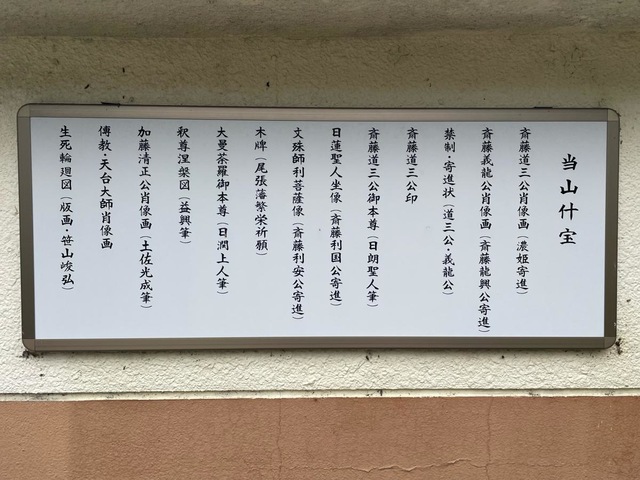 当山什宝
斎藤道三公肖像画（濃姫寄進）
斎藤義龍公肖像画（斎藤龍興公寄進）
禁制・寄進状（道三公・義龍公）
斎藤道三公印
斎藤道三公御本尊（日朗聖人筆）
日蓮聖人坐像（斎藤利国公寄進）
文殊師利菩薩像（斎藤利安公寄進）
木牌（尾張藩繁栄祈願）
大曼荼羅御本尊（日潤上人筆）
釈尊涅槃図（益興筆）
加藤清正公肖像画（土佐光成筆）
傳教・天台大師肖像画
生死輪廻図（版画・笹山峻弘）